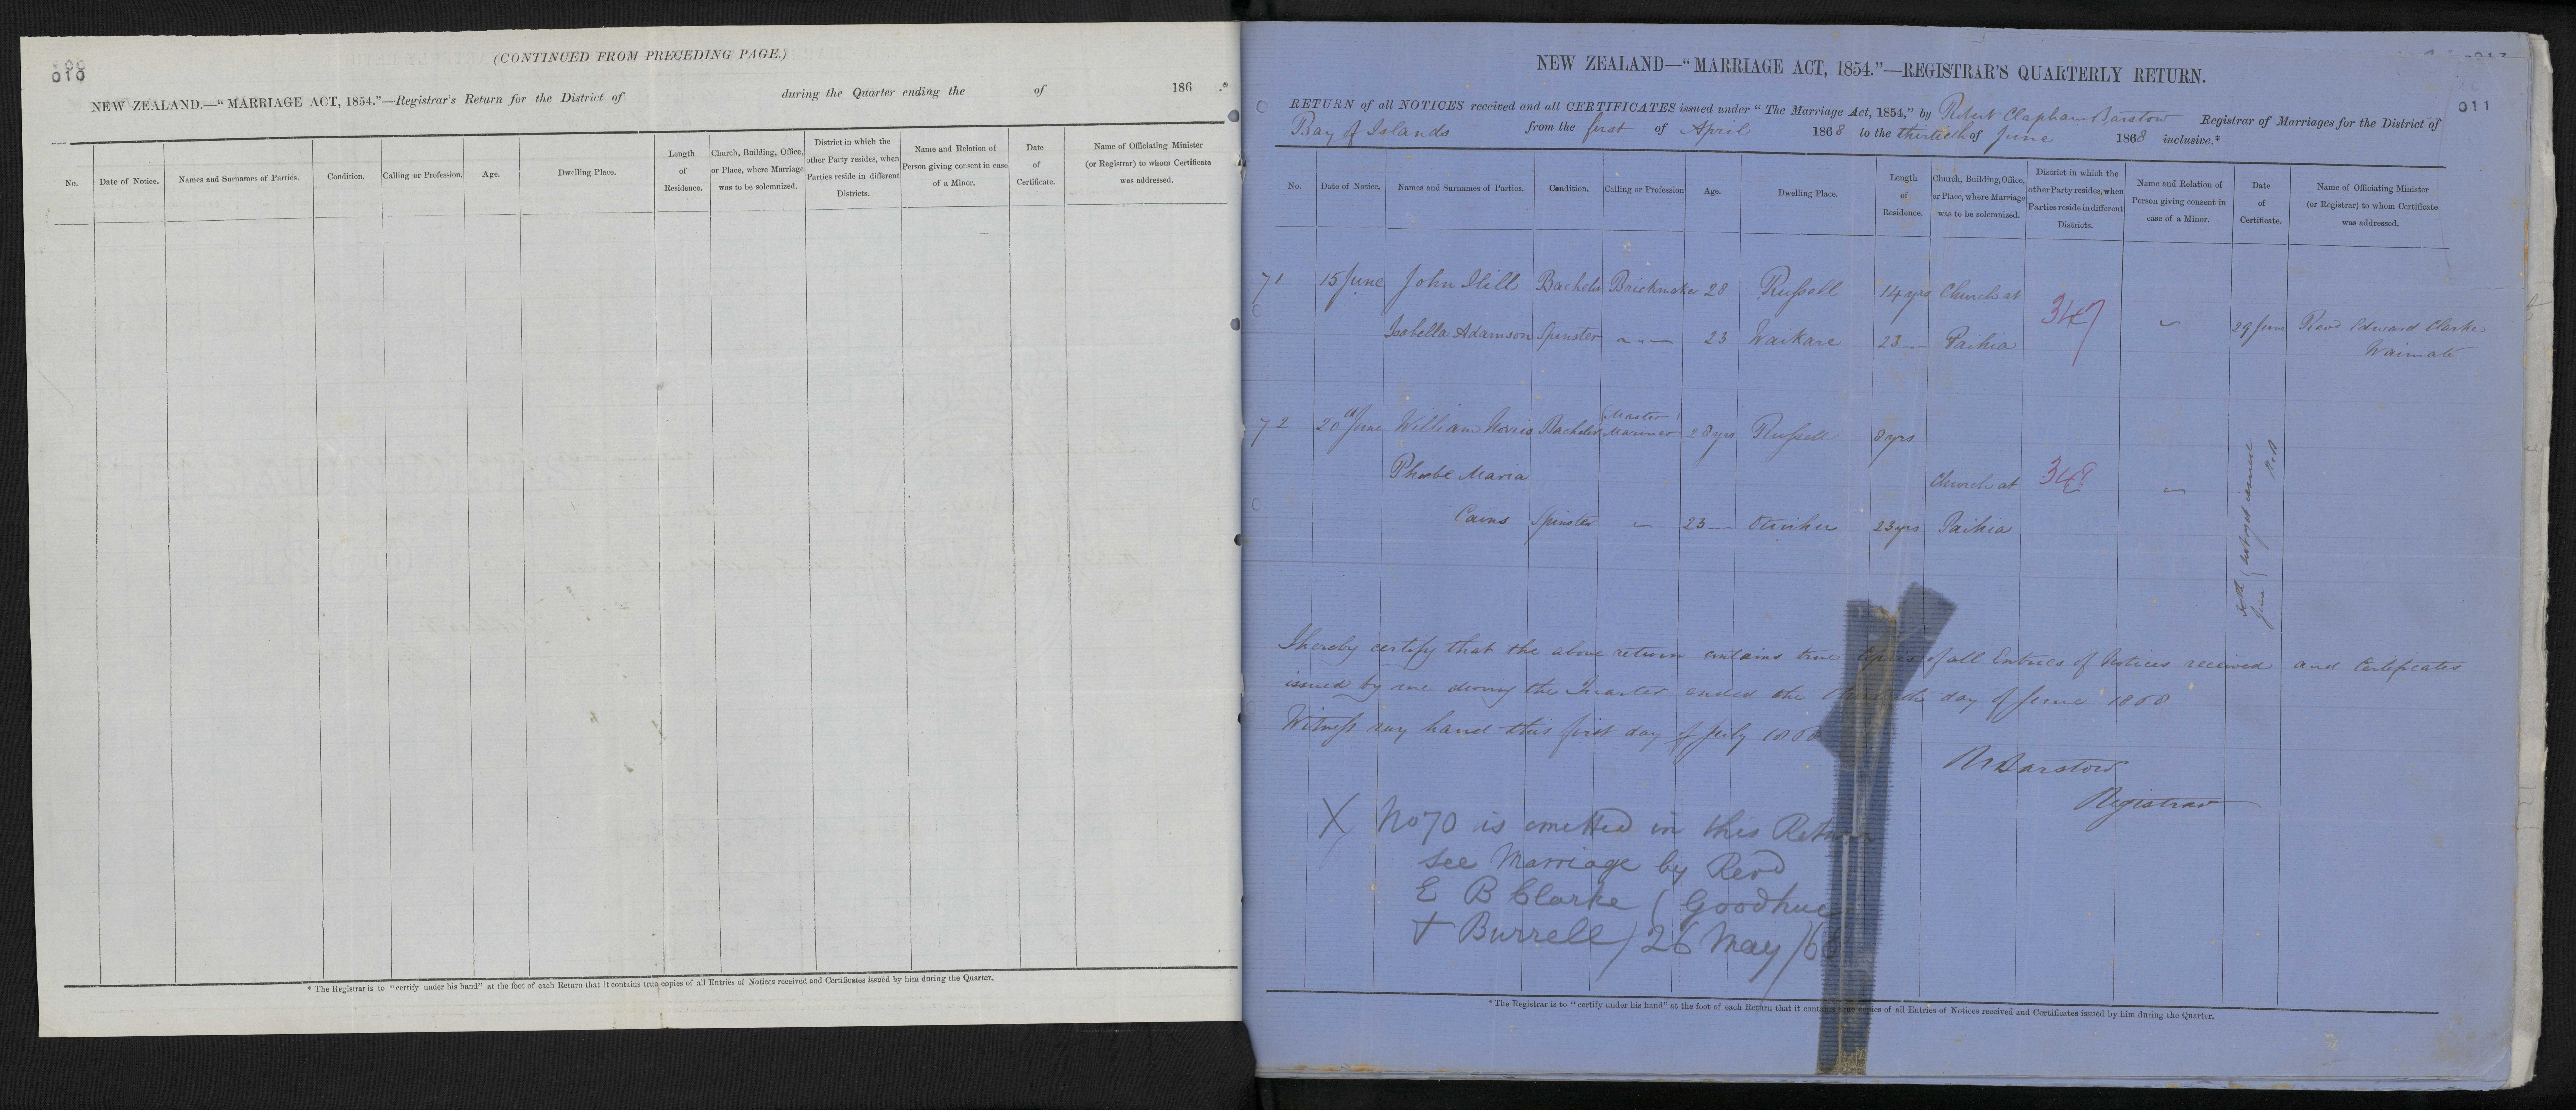 (CONTINUED FROM PRECEDING PAGE.)
010
NEW ZEALAND.—"MARRIAGE ACT, 1854."—Registrar's Return for the District of during the Quarter ending the of 186 .*
No.
Date of Notice.
Names and Surnames of Parties.
Condition.
Calling or Profession.
Age.
Dwelling Place.
Length of Residence.
Church, Building, Office, or Place, where Marriage was to be solemnized.
District in which the other Party resides, when Parties reside in different Districts.
Name and Relation of Person giving consent in case of a Minor.
Date of Certificate.
Name of Officiating Minister (or Registrar) to whom Certificate was addressed.
* The Registrar is to "certify under his hand" at the foot of each Return that it contains true copies of all Entries of Notices received and Certificates issued by him during the Quarter.
NEW ZEALAND—"MARRIAGE ACT, 1854."—REGISTRAR'S QUARTERLY RETURN.
011
RETURN of all NOTICES received and all CERTIFICATES issued under "The Marriage Act, 1854," by Robert Clapham Barstow Registrar of Marriages for the District of
Bay of Islands from the first of April 1868 to the thirtieth of June 1868 inclusive.*
No.
Date of Notice.
Names and Surnames of Parties.
Condition.
Calling or Profession
Age.
Dwelling Place.
Length of Residence.
Church, Building, Office, or Place, where Marriage was to be solemnized.
District in which the other Party resides, when Parties reside in different Districts.
Name and Relation of Person giving consent in case of a Minor.
Date of Certificate.
Name of Officiating Minister (or Registrar) to whom Certificate was addressed.
71 15 June John Hill Bachelor Brickmaker 28 Russell 14 yrs Church at 347 29 June Revd Edward Clarke
Isabella Adamson Spinster 23 Waikare 23 Paihia Waimate
72 20th June William Norris Bachelor Master Mariner 28 yrs Russell 8 yrs
Phoebe Maria Church at 348
Cains Spinster 23 23 yrs Paihia
30th June not yet issued
I hereby certify that the above return contains true Copies of all Entries of Notices received and Certificates
issued by me during the Quarter ended the thirtieth day of June 1868
Witness my hand this first day of July 1868
R Barstow
Registrar
X No 70 is omitted in this Return
see Marriage by Revd
E B Clarke (Goodhue
+ Burrell) 26 May /68
* The Registrar is to "certify under his hand" at the foot of each Return that it contains true copies of all Entries of Notices received and Certificates issued by him during the Quarter.